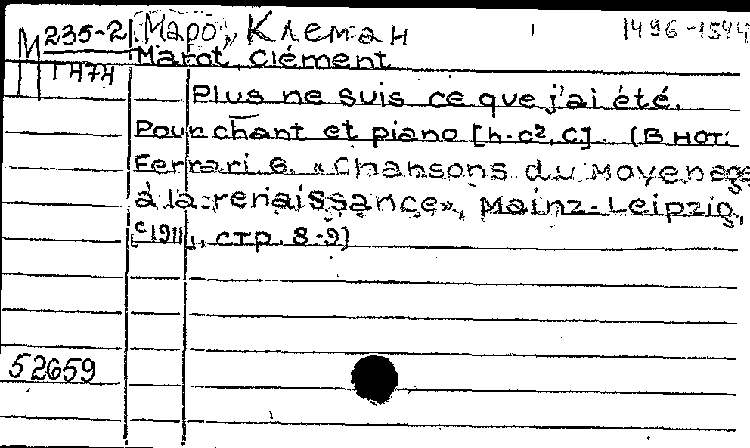 М 235-2 Маро, Клеман 1496-1544
1474 Marot, Clément
Plus ne suis ce que j'ai été.
Pour chant et piano [h-c², C]. (В нот.:
Ferrari G. «Chansons du Moyen age
à la renaissance», Mainz-Leipzig,
[c 1911], стр. 8-9)
52659